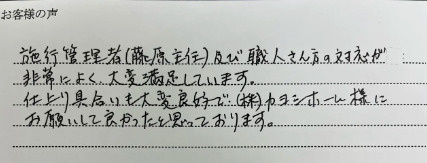 お客様の声
施行管理者(藤原主任)及び職人さん方の対応が
非常によく、大変満足しています。
仕上り具合いも大変良好で(株)カヨシホーム様に
お願いして良かったと思っております。